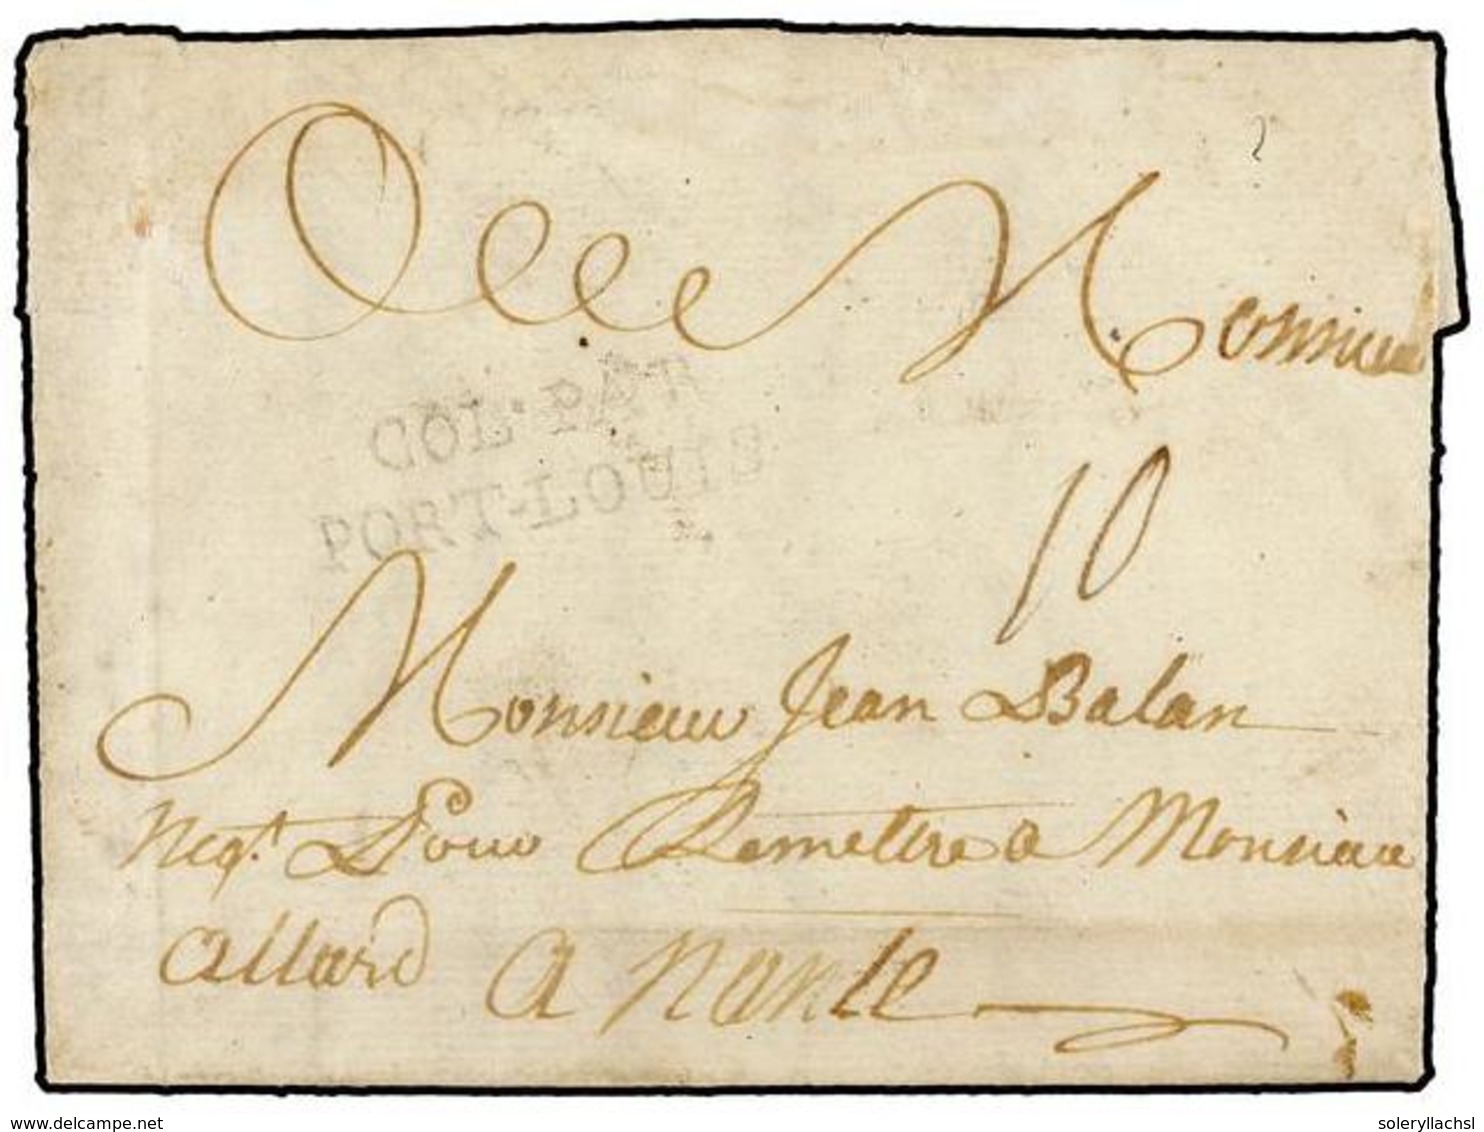 A Monsieur
COL·PAR
PORT-LOUIS
10
Monsieur Jean Balan
Negt. Pour Remettre a Monsieur
Allard A Nante
delcampe.net
soleryllachsl